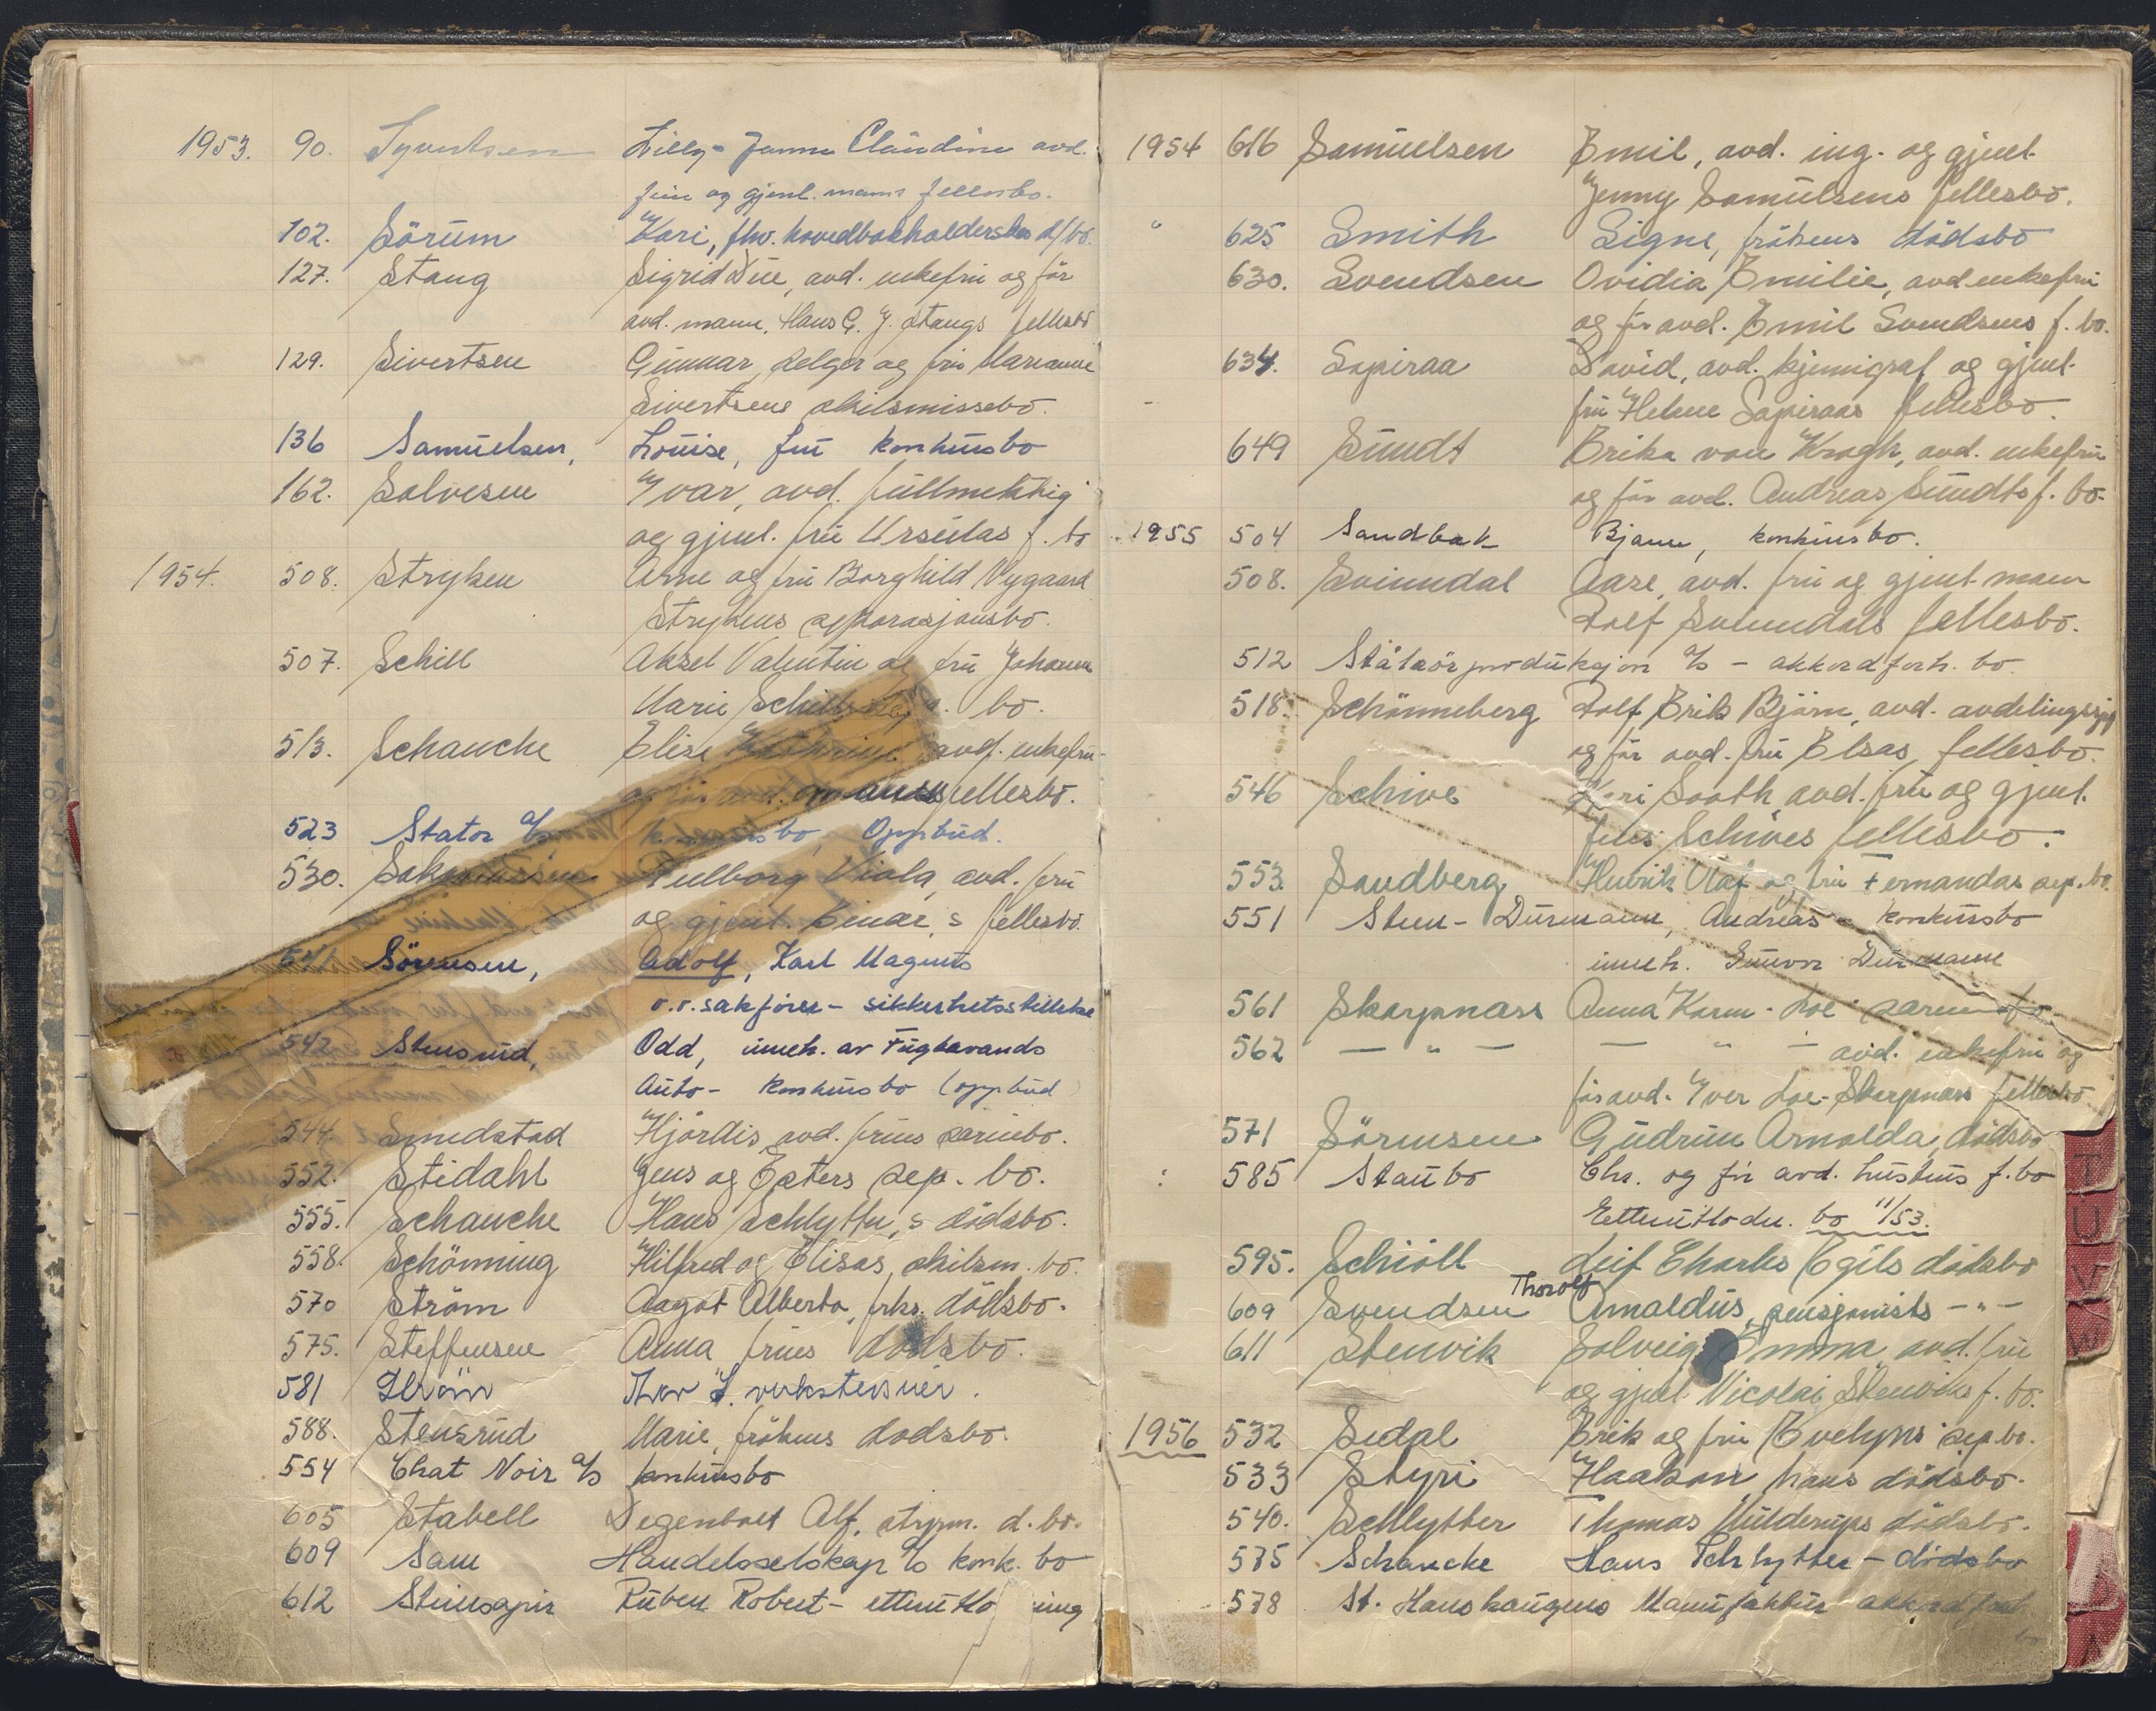 1953. 90. Syvertsen Lilly-Janna Claudine avd.
frue og gjenl. manns fellesbo.
102. Sörum Kari, fhv. hovedbokholderskes d/bo.
127. Stang Sigrid Due, avd. enkefru og för
avd. mann, Hans G. J. Stangs fellesbo
129. Sivertsen Gunnar, selger og fru Marianne
Sivertsens skilsmissebo.
136 Samuelsen, Louise, fru konkursbo
162. Salvesen Yvar, avd. fullmektig
og gjenl. fru Ursulas f. bo
1954. 508. Stryken Arne og fru Borghild Nygaard
Strykens separasjonsbo.
507. Schill Aksel Valentin og fru Johanne
Marie Schills sep. bo.
513. Schanche Elise Kathrine avd. enkefru
og för avd. manns fellesbo.
523 Stator a/s konkursbo, Oppbud.
530. Valborg Viola, avd. fru
og gjenl. Einar,s fellesbo.
541 Sörensen, Adolf, Karl Magnus
o.r.sakförer - sikkerhetsstillelse
542 Stensrud, Odd, inneh. av Fuglevands
Auto - konkursbo (oppbud)
544. Smedstad Hjördis, avd. frues særbo.
552. Stidahl Jens og Esters sep. bo.
555. Schanche Hans Schlytter,s dödsbo.
558. Schönning Hilfred og Elisas, skilsm. bo.
570 Ström Aagot Alberta, frks. dödsbo.
575. Steffensen Anna frues dödsbo.
581 Ström Thor L. verksteseier.
588. Stensrud Marie, frökens dödsbo.
554 Chat Noir a/s konkursbo
605 Stabell Degenbolt Alf, styrm. d. bo.
609 Sam Handelsselskap a/s konk. bo
612 Steinsapir Ruben Robert - ettrutlo ing
1954 616 Samuelsen Emil, avd. ing. og gjenl.
Jenny Samuelsens fellesbo.
" 625 Smith Signe, frökens dödsbo
630. Svendsen Ovidia Emilie, avd. enkefru
og för avd. Emil Svendsens f. bo.
634. Sapiraa David, avd. kjemigraf og gjenl.
fru Helene Sapiraas fellesbo.
649 Sundt Erika von Krogh, avd. enkefru
og för avd. Andreas Sundts f. bo.
1955 504 Sandbak Bjarne, konkursbo.
508. Svinndal Aase, avd. fru og gjenl. mann
Rolf Svinndals fellesbo.
512 Stålrörproduksjon a/s - akkordforh. bo.
518. Schönneberg Rolf Erik Björn, avd. avdelingssj
og för avd. fru Elsas, fellesbo.
546 Schive Kari Sooth avd. fru og gjenl.
Jens Schives fellesbo.
553. Sandberg Henrik Olaf og fru Fernandas sep. bo.
551 Steen-Durmann, Andreas - konkursbo
inneh. Gunvor Durmann
561 Skarpnass Anna Karin Loe særbo
562 — " — — " — avd. enkefru og
för avd. Yver Loe-Skarpnass fellesbo
571 Sörensen Gudrun Arnolda, dödsbo
585 Staubo Chr. og för avd. hustrus f. bo
Etterutlodn. bo 11/53.
595. Schiöll Leif Charles Egils dödsbo
609 Svendsen Thorolf Arnoldus, pensjonists - " -
611 Stenvik Solveig Emma avd. fru
og gjenl. Nicolai Stenviks f. bo.
1956 532 Sedal Erik og fru Evelyns sep. bo.
533 Styri Haakon, hans dödsbo.
540. Schlytter Thomas Mülderups dödsbo.
575 Schancke Hans Schlytter - dödsbo
578 St. Hanshaugens Manufaktur akkordforh
bo
T
U
V
W